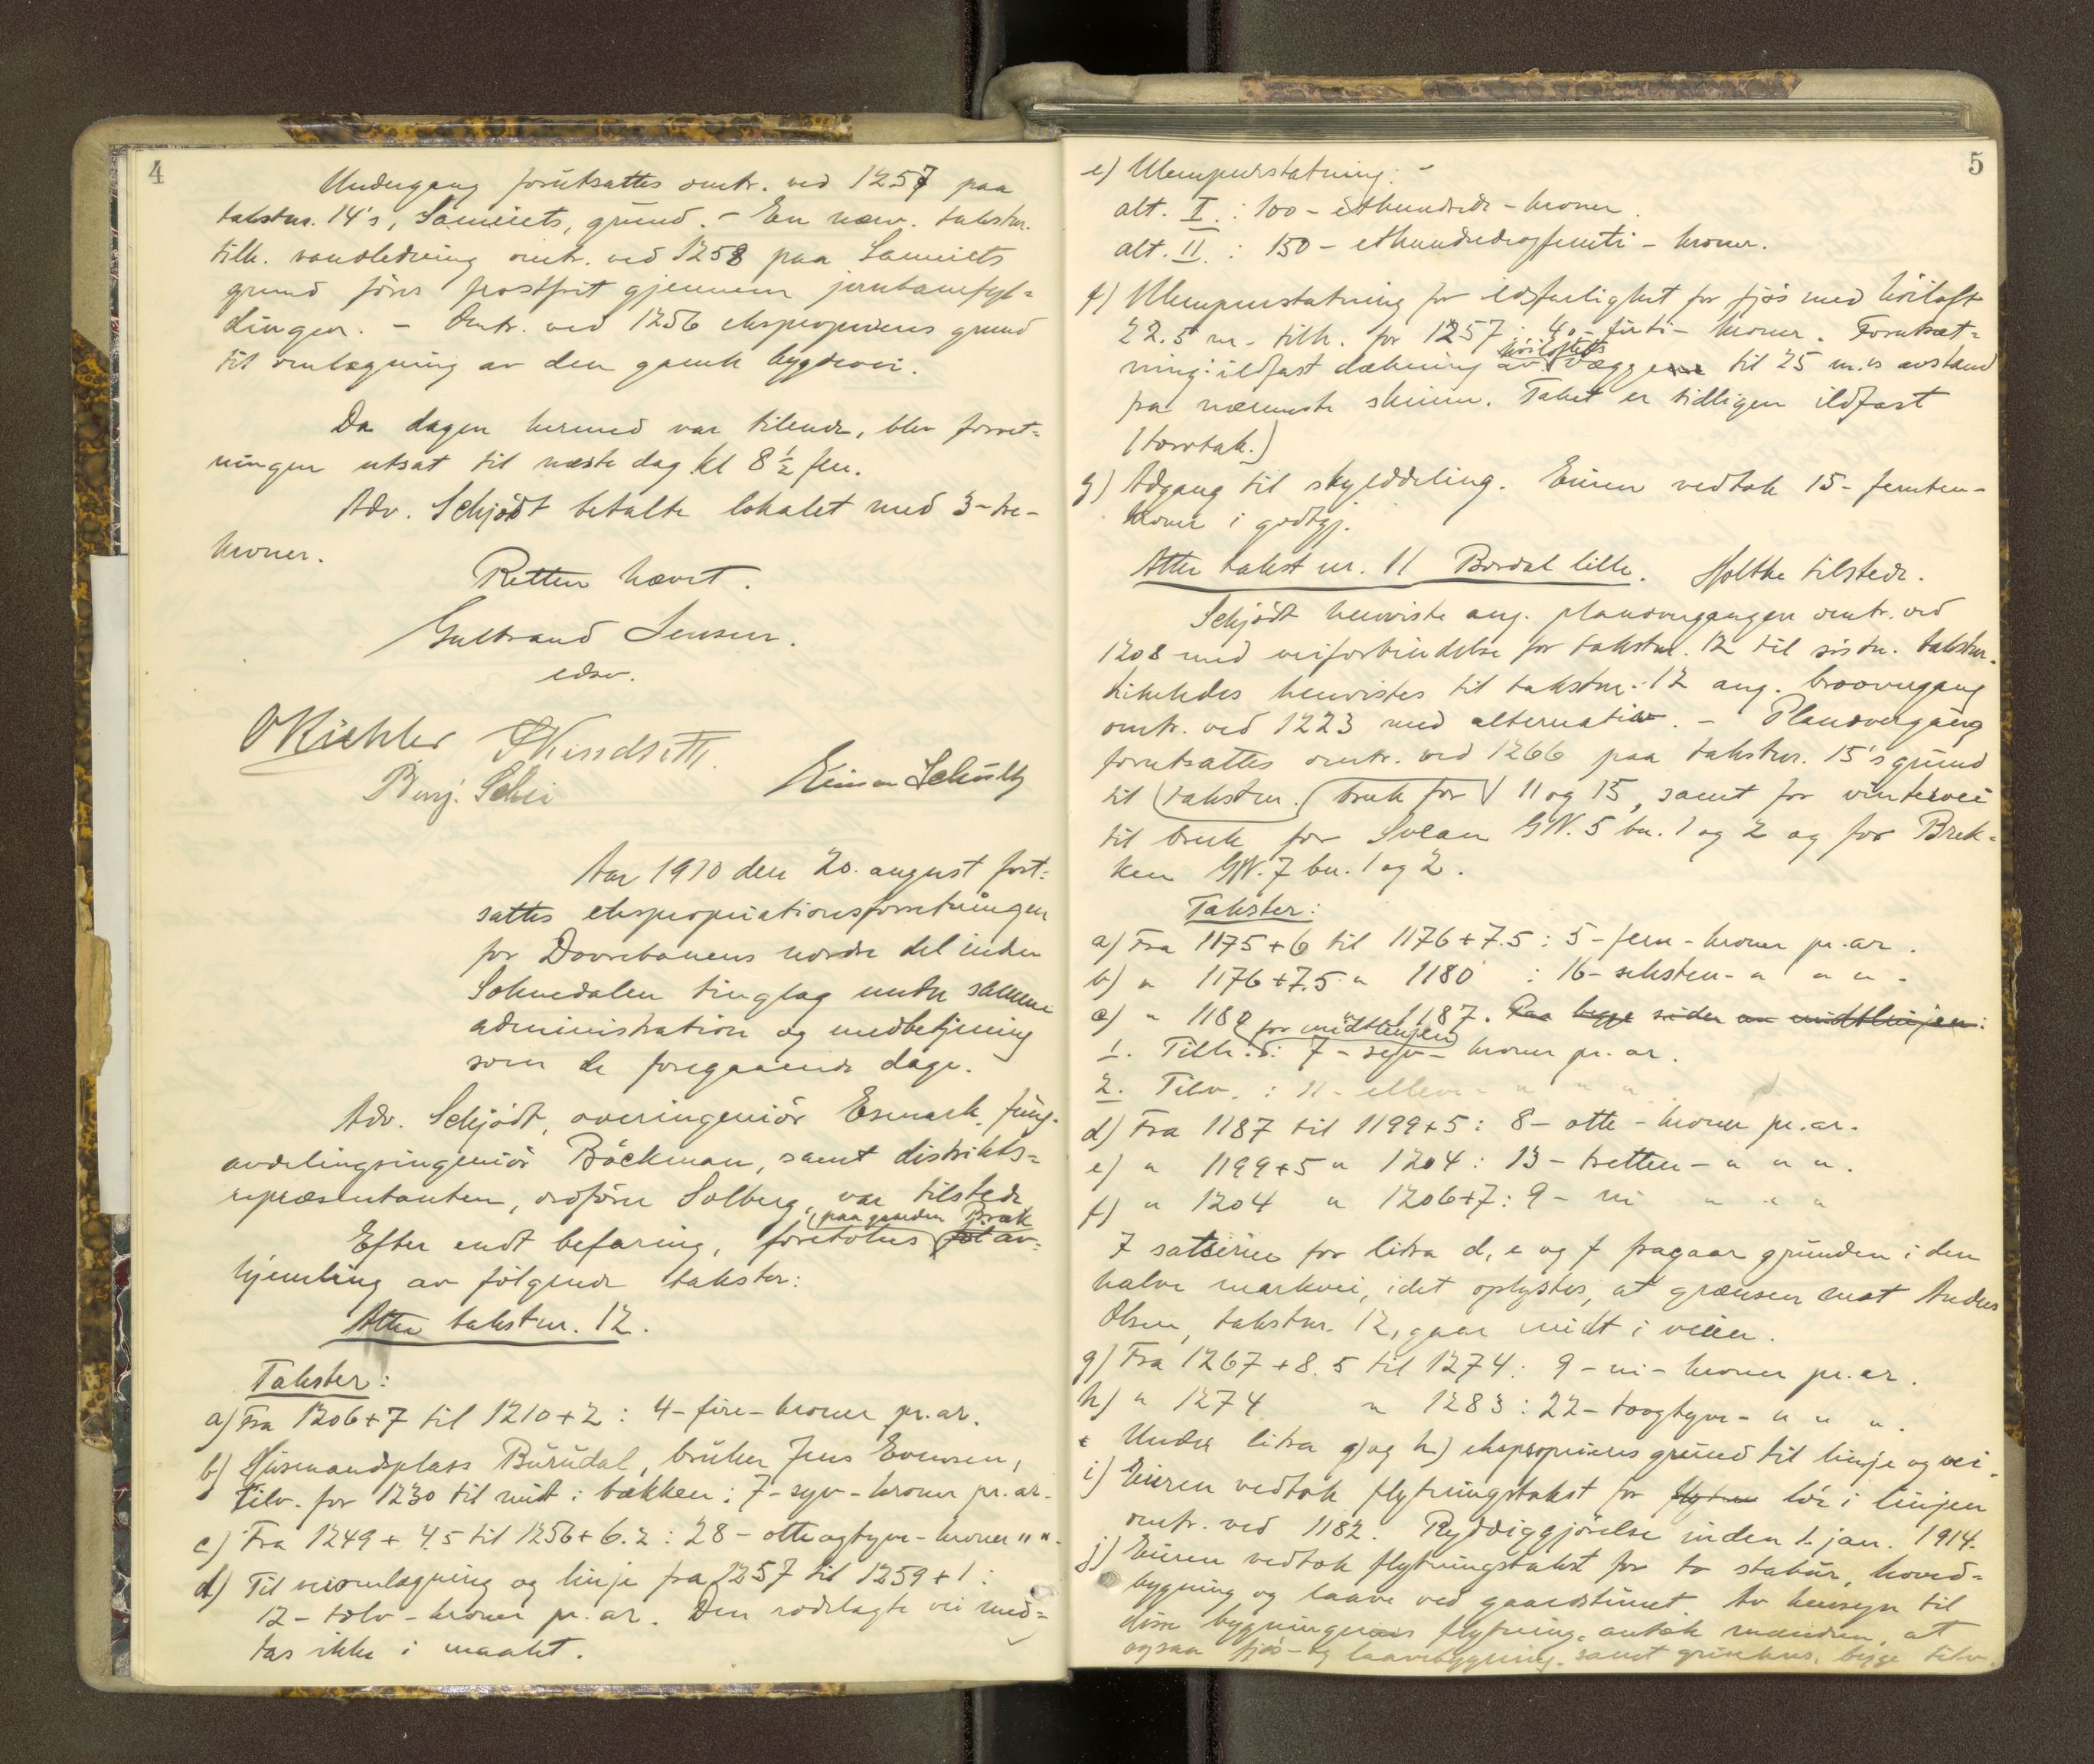 4
Undergang forutsattes omtr. ved 1257 paa
takstnr. 14's, Samiets, grund. - En nærv. takstnr.
tilh. vandledning omtr. ved 1258 paa Samiets
grund føres frostfrit gjennem jernbanefyl=
dingen. - Omtr. ved 1256 eksproprieres grund
til omlægning av den gamle bygdevei.
Da dagen hermed var tilende, blev forret=
ningen utsat til næste dag kl 8 1/2 fm.
Adv. Schjødt betalte lokalet med 3-tre-
kroner.
Retten hævet.
Gulbrand Jensen.
edsv.
O Richter
Benj. Schei
Einar Schultz
Aar 1910 den 20. august fort-
sattes ekspropriationsforretningen
for Dovrebanens nordre del inden
Soknedalen tinglag under samme
administration og medbetjening
som de foregaaende dage.
Adv. Schjødt, overingeniør Esmark, fung.
avdelingsingeniør Bøckman, samt distrikts=
repræsentanten, ordfører Solberg, var tilstede
paa gaarden Bræk
Efter endt befaring, foretokes av=
hjemling av følgende takster:
Atter takstnr. 12.
Takster:
a) Fra 1206+7 til 1210+2: 4-fire-kroner pr. ar.
b) Husmandsplass Burudal, bruker Jens Evensen,
Tilv. for 1230 til midt i bækken: 7-syv-kroner pr. ar.
c) Fra 1249 + 4.5 til 1256+6.2: 28 - otte og tyve - kroner " ".
d) Til veiomlægning og linje fra 1257 til 1259+1:
12-tolv-kroner pr. ar. Den nedlagte vei med=
tas ikke i maalet.
5
e) Ulempeerstatning: -
alt. I.: 100 - ethundrede - kroner.
alt. II.: 150 - ethundredeogfemti - kroner.
f) Ulempeerstatning for ildsfarlighet for fjøs med høiloft
22.5 m. tilh. for 1257: 40-førti- kroner. Forutsæt=
høiloftets
ning: ildfast dækning av væggene til 25 m.'s avstand
fra nærmeste skinne. Taket er tidligere ildfast
(torvtak.)
g) Adgang til skylddeling. Eieren vedtok 15-femten-
kroner i godtgj.
Atter takst nr. 11 Bordal lille. Holthe tilstede.
Schjødt henviste ang. planovergangen omtr. ved
1208 med veiforbindelse for takstnr. 12 til sistn. takstnr.
Likeledes henvistes til takstnr. 12 ang. broovergang
omtr. ved 1223 med alternativ. - Planovergang
forutsattes omtr. ved 1266 paa takstnr. 15's grund
til takstnr. bruk for 11 og 15, samt for vintervei
til bruk for Solan GN. 5 bn. 1 og 2 og for Brek=
ken GN. 7 bn. 1 og 2.
Takster:
a) Fra 1175+6 til 1176+7.5: 5-fem-kroner pr. ar.
b) " 1176+7.5 " 1180 : 16-seksten- " " " .
c) " 1180 " 1187. Paa begge sider av midtlinjen:
for midtlinjen
1. Tilh.: 7-syv- kroner pr. ar.
2. Tilv. : 11-elleve- " " "
d) Fra 1187 til 1199+5: 8-otte-kroner pr. ar.
e) " 1199+5 " 1204: 13-tretten- " " ".
f) " 1204 " 1206+7: 9- ni " " "
I satserne for litra d, e og f fragaar grunden i den
halve markvei, idet oplystes, at grænsen mot Anders
Olsen, takstnr. 12, gaar midt i veien.
g) Fra 1267+8.5 til 1274: 9-ni-kroner pr. ar.
h) " 1274 " 1283: 22-toogtyve- " " ".
Under litra g) og h) eksproprieres grund til linje og vei.
i) Eieren vedtok flytningstakst for flytn. løe i linjen
omtr. ved 1182. Ryddiggjørelse inden 1. jan. 1914.
j) Eieren vedtok flytningstakst for to stabur, hoved=
bygning og laave ved gaardstunet. Av hensyn til
disse bygningers flytning, antok mændene, at
ogsaa fjøs- og laavebygning, samt grisehus, begge tilv.